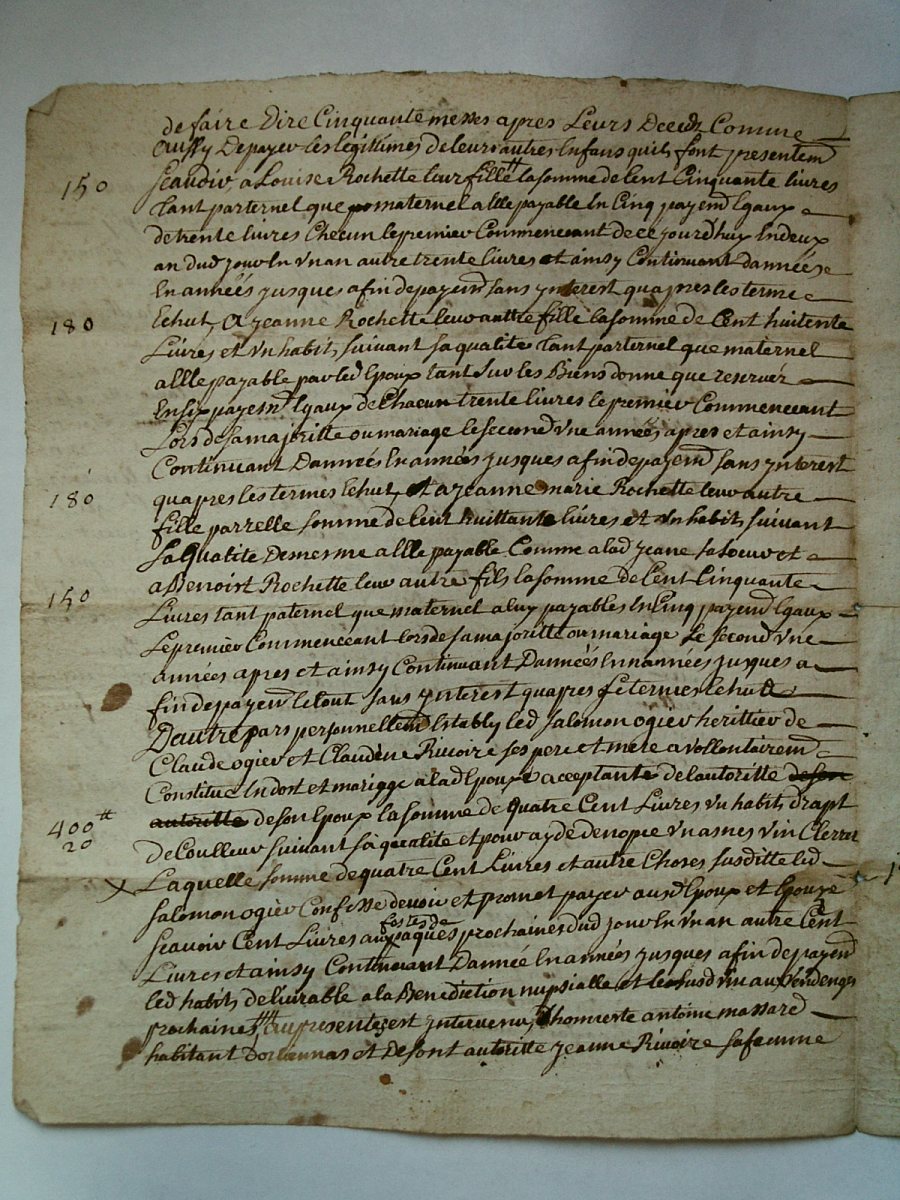 de faire dire Cinquante messes apres Leurs Deceds Comme
aussy Depayer les legittimes de leurs autres Enfans quils font presentem
150 Scavoir a Louise Rochette leur fille la somme de Cent Cinquante livres
tant parternel que maternel a Elle payable En Cinq payemt Egaux
de trente livres Checun le premier Commencant de ce jourdhuy En deux
an dud jour En un an autre trente livres et ainsy Continuant dannées
En années jusques a fin de payemt sans ynterest quapres les terme
180 Echut, a jeanne Rochette leur autre fille la somme de Cent huitente
Livres et un habit suivant sa qualite tant parternel que maternel
a Elle payable par led Epoux tant sur les Biens donne que reservér
En six payemt Egaux de Chacun trente livres le premier Commencant
Lors de sa majoritte ou mariage le second une années apres et ainsy
Continuant Dannées En années jusques a fin de payemt sans ynterest
180 quapres les termes Echut, et a jeanne marie Rochette leur autre
fille parrelle somme de Cent huittante livres et un habit, suivant
sa Qualite De mesme a Elle payable Comme a lad jeane sa soeur et
a Benoist Rochette leur autre fils la somme de Cent Cinquante
150 Livres tant paternel que maternel a luy payables En Cinq payemt Egaux
Le premier Commencant lors de sa majoritte ou mariage Le second une
années apres et ainsy Continuant Dannées En années jusques a
fin de payemt le tout sans ynterest quapres le termes Echut
D'autre pars personnellemt Estably led Salomon ogier herittier de
Claude ogier et Claudene Rivoire ses pere et mere a vollontairemt
Constitue En dost et mariage a lad Epouse acceptante de l autoritte de son
autoritte de son Epoux la somme de Quatre Cent Livres un habit, drapt
400 tt
20 de Coulleur suivant sa qualite et pour ayde de nopce un asnes vin Clerret
X Laquelle somme de quatre Cent Livres et autre Choses susditte led
Salomon ogier Confesse devoir et promet payer ausd Epoux et Epouse
Scavoir Cent Livres aux festes de paques prochaines dud jour En un an autre Cent
Livres et ainsy Continuant Dannée En années jusques a fin de payemt
led habits delivrable a la Benediction nupsialle et le susd vin aux Vendenges
prochaines, au presentes est yntervenu, honneste antoine massard
habitant et De sont autoritte jeanne Rivoire sa femme